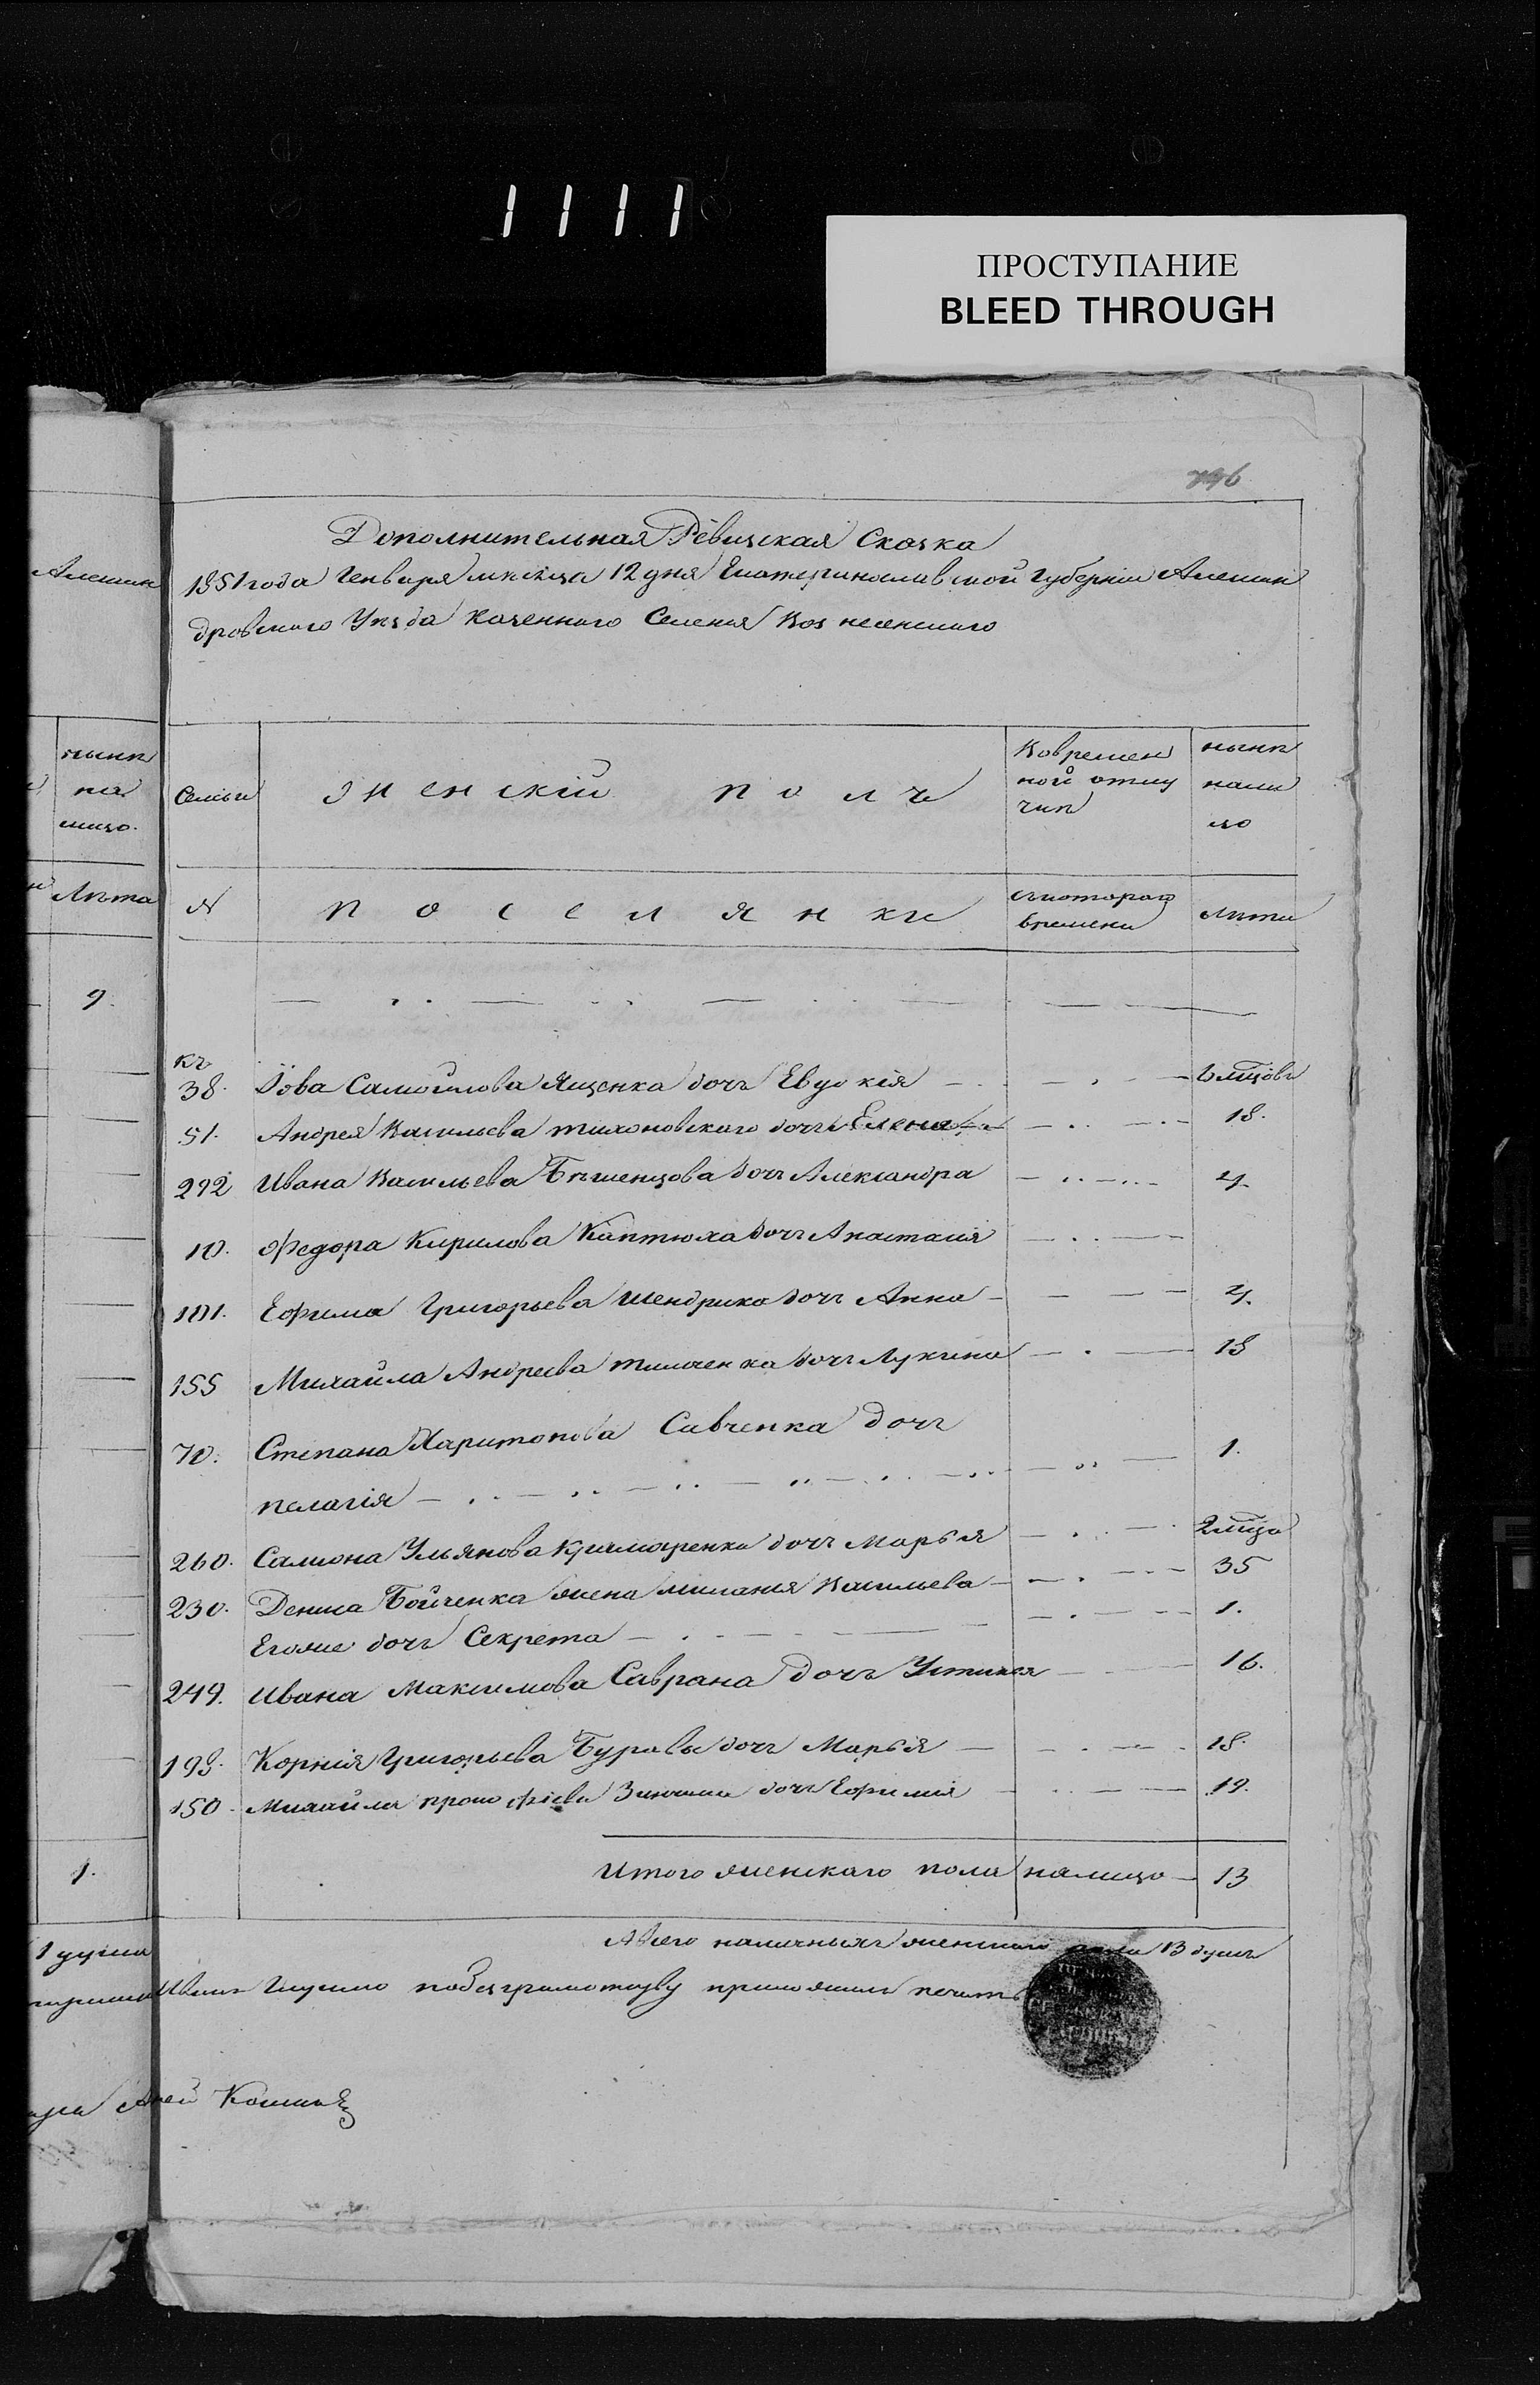 1111
ПРОСТУПАНИЕ
BLEED THROUGH
796
Дополнительная Ревизская Сказка
1851 года Генваря месяца 12 дня Екатеринославской Губернии Алексан
дровского Уезда Казенного Селения Вознесенского
Семьи
Женскій полъ
Вовремен
ной отлу
чкѣ
нынѣ
нали
цо
№
поселянки
скоторого
времени
Лѣта
къ
38. Іова Самойлова Ященка дочь Евдокія
51. Андрея Васильева Тихоновского дочь Елена 18.
292 Ивана Васильева Бѣшенцова дочь Александра 4.
10. Федора Кирилова Каптюха дочь Анастасія
101. Ефима Григорьева Шендрика дочь Анна 4.
155 Михайла Андреева дочь Лукина 18
70. Степана Харитонова Савченка дочь
Пелагія 1.
260. Самиона Ульянова Крамаренка дочь Марья
230. Дениса Бойченка жена Милания Васильева 35
Егоже дочь Секрета 1.
249. Ивана Максимова Саврана дочь Устинья 16.
193. Корнія Григорьева Буравы дочь Марья 18.
150. Михайла дочь Ефимія 19.
Итого женскаго пола налицо 13
Авсего наличныхъ женскаго пола 13 душъ
Иванъ побезграмотству приложилъ печать
Алексан
нынѣ
на
лицо.
Лѣта
9.
1.
1 душа